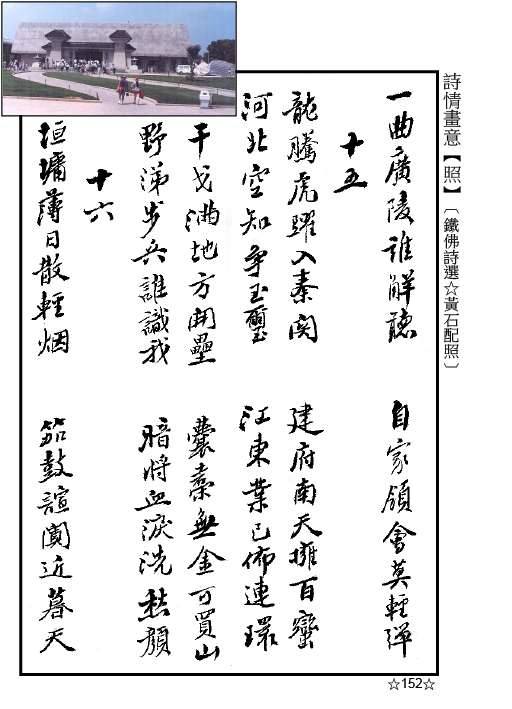 詩情畫意【照】〔鐵佛詩選☆黃石配照〕
一曲廣陵誰解聽 自家領會莫輕彈
十五
龍騰虎躍入秦関 建府南天擁百蠻
河北空知爭玉璽 江東業已佈連環
干戈滿地方開壘 囊橐無金可買山
野涕步兵誰識我 暗將血淚洗愁顏
十六
垣墉薄日散輕烟 笳鼓諠闐近暮天
☆152☆